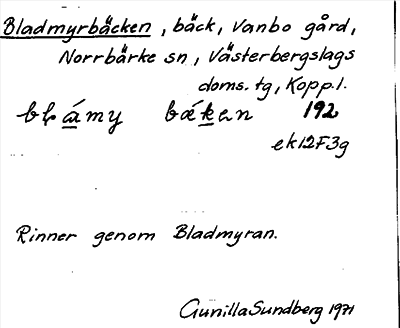 Bladmyrbäcken, bäck, Vanbo gård,
Norrbärke sn, Västerbergslags
doms. tg, Kopp.l.
192
ek12F3g
Rinner genom Bladmyran.
Gunilla Sundberg 1971